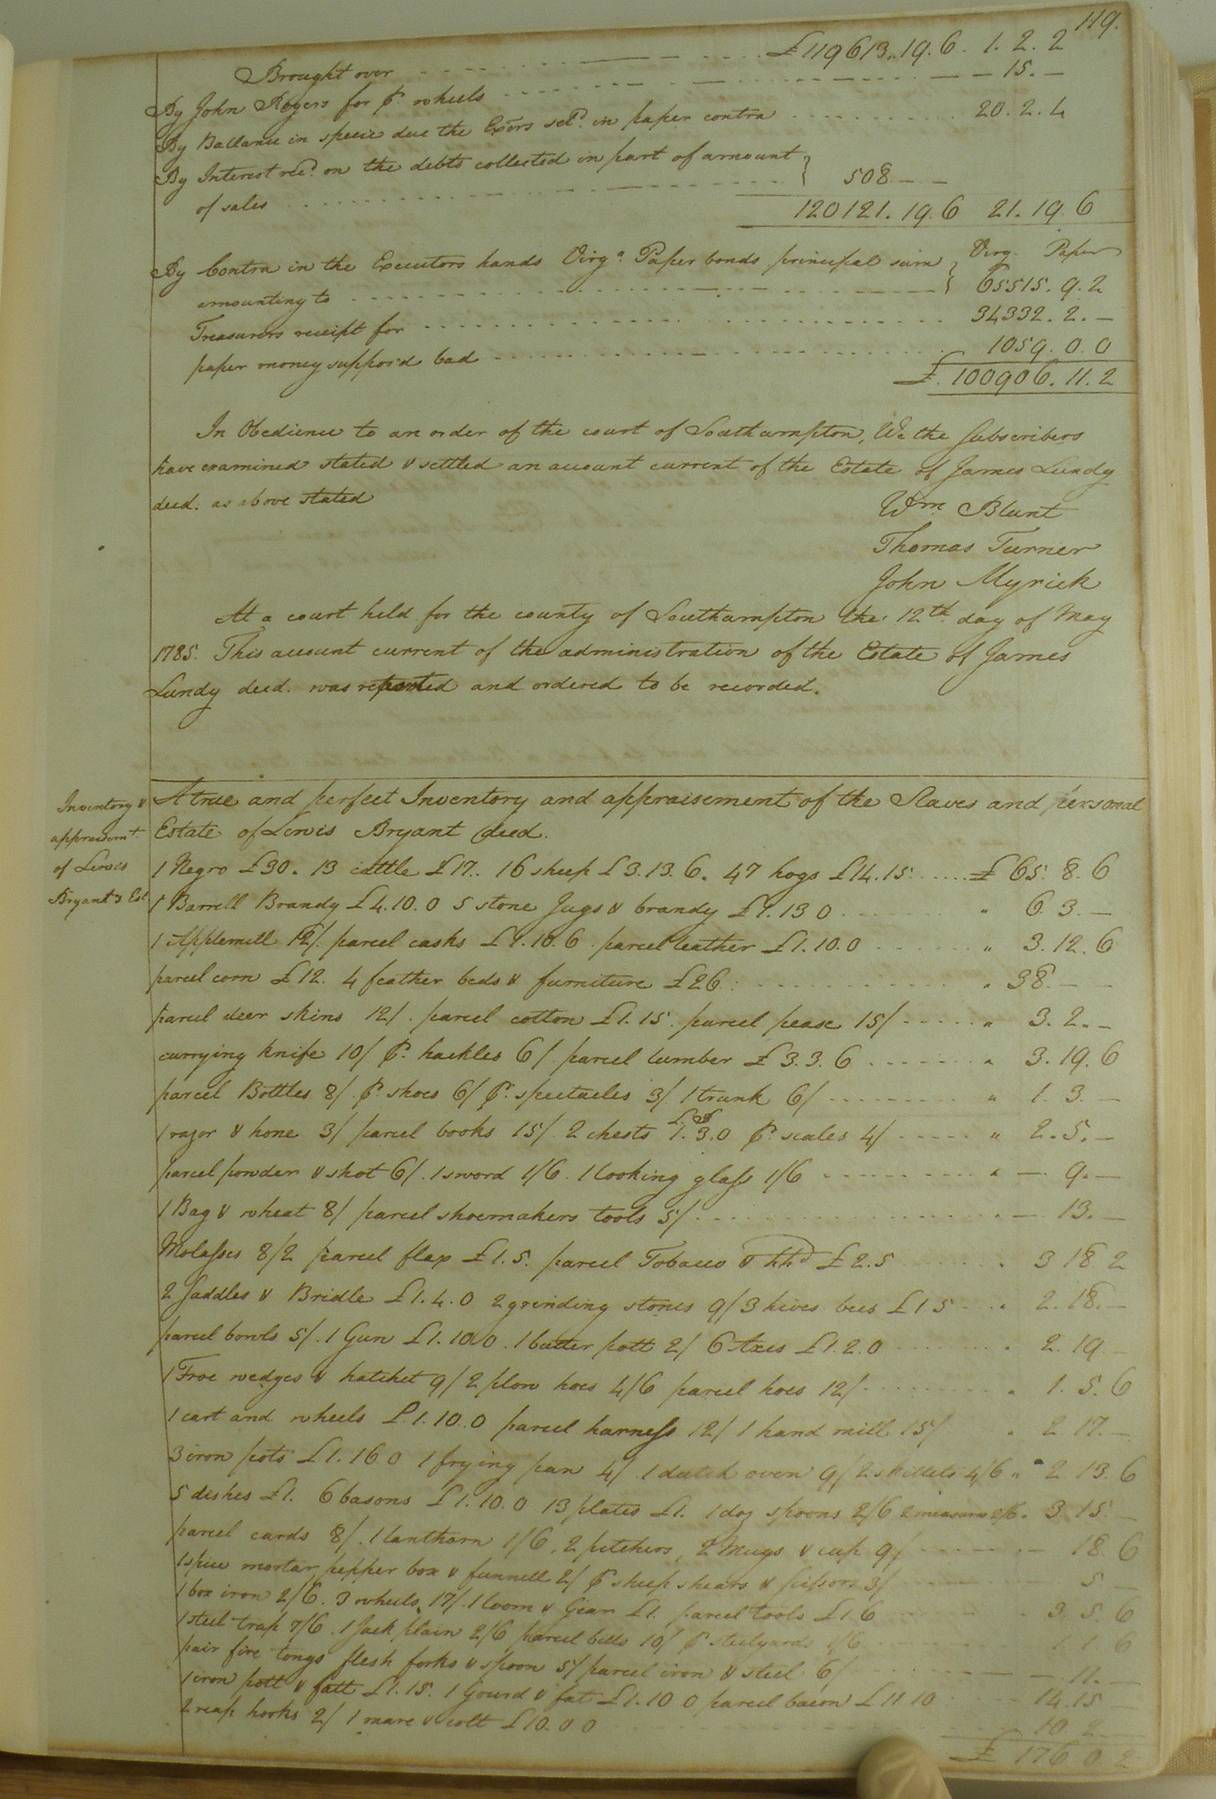 119.
Brought over £119613.19.6. 1.2.2
By John Rogers for pr. wheels 15.—
By Ballance in specie due the Exors setd. in paper contra 20.2.4
By Interest recd. on the debts collected in part of amount
of sales 508 — —
120121.19.6 21.19.6
By Contra in the Executors hands Virga. Paper bonds principal sum Virg. Paper
amounting to 65515.9.2
Treasurers receipt for 34332.2.—
paper money suppos'd bad 1059.0.0
£.100906.11.2
In Obedience to an order of the court of Southampton, We the Subscribers
have examined stated & settled an account current of the Estate of James Lundy
decd. as above stated
Wm. Blunt
Thomas Turner
John Myrick
At a court held for the county of Southampton the 12th day of May
1785. This account current of the administration of the Estate of James
Lundy decd. was reported and ordered to be recorded.
Inventory &
appraisemt.
of Lewis
Bryant's Est
A true and perfect Inventory and appraisement of the Slaves and personal
Estate of Lewis Bryant decd.
1 Negro £30. 13 cattle £17. 16 sheep £3.13.6. 47 hogs £14.15. £65.8.6
1 Barrell Brandy £4.10.0 5 stone Jugs & brandy £1.13 0 6.3.—
1 Applemill 12/. parcel casks £1.10.6. parcel leather £1.10.0 " 3.12.6
parcel corn £12. 4 feather beds & furniture £26. 38.— —
parcel deer skins 12/. parcel cotton £1.15. parcel pease 15/ " 3.2.—
currying knife 10/ pr. hackles 6/. parcel lumber £3.3.6 " 3.19.6
parcel Bottles 8/. pr. shoes 6/ pr. spectacles 3/. 1 trunk 6/ " 1.3.—
1 razor & hone 3/ parcel books 15/ 2 chests £1.3.0 pr. scales 4/ " 2.5.—
parcel powder & shot 6/. 1 sword 1/6. 1 looking glass 1/6 " —.9.—
1 Bag & wheat 8/ parcel shoemakers tools 5/ — 13.—
Molasses 8/2 parcel flax £1.5. parcel Tobacco & hhd £2.5 3 18 2
2 Saddles & Bridle £1.4.0 2 grinding stones 9/ 3 hives bees £1 5 2.18.—
parcel bowls 5/. 1 Gun £1.10.0. 1 butter pott 2/ 6 Axes £1.2.0 2.19 —
1 Froe wedges & hatchet 9/ 2 plow hoes 4/6 parcel hoes 12/ 1.5.6
1 cart and wheels £1.10.0 parcel harness 12/ 1 hand mill 15/ 2 17.—
3 iron pots £1.16 0 1 frying pan 4/. 1 dutch oven 9/ 2 skillets 4/6 " 2 13.6
5 dishes £1. 6 basons £1.10.0 13 plates £1. 1 doz spoons 2/6 2 measures 2/6. 3.15.—
parcel cards 8/. 1 lanthorn 1/6. 2 pitchers, 2 Mugs & cup 9/ 18.6
1 spice mortar, pepper box & funnell 2/ pr sheep shears & scissors 3/ 5 —
1 box iron 2/6. 3 wheels 17/. 1 loom & Gear £1. parcel tools £1.6 3.5.6
1 steel trap 7/6. 1 Jack plain 2/6 parcel bells 10/ pr steelyards 1/6 1 1 6
pair fire tongs flesh forks & spoon 5/ parcel iron & steel 6/ — 11.—
1 iron pott & fatt £1.15. 1 Gourd & fat £1.10 0 parcel bacon £11 10 14.15
2 reap hooks 2/ 1 mare & colt £10.0 0 10.2
£ 176 0 2